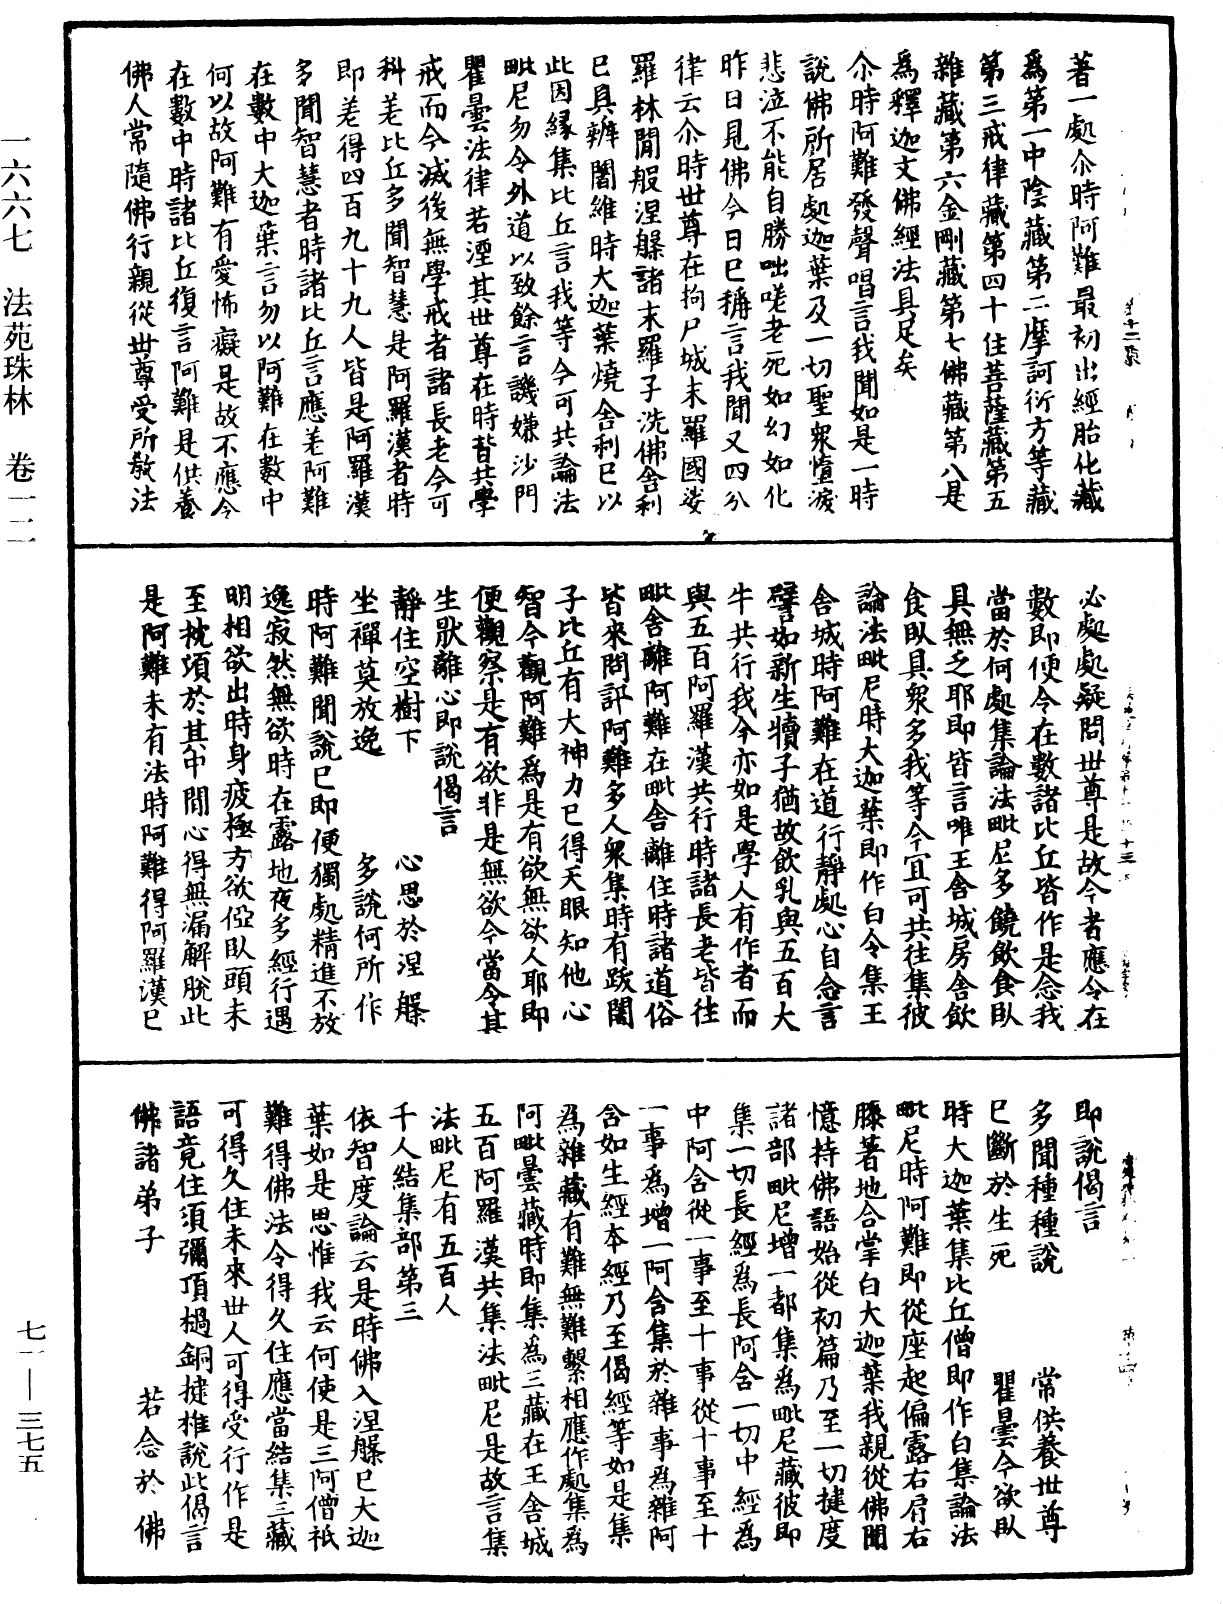 著一處尒時阿難最初出經胎化藏
爲第一中陰藏第二摩訶衍方等藏
第三戒律藏第四十住菩薩藏第五
雜藏第六金剛藏第七佛藏第八是
爲釋迦文佛經法具足矣
尒時阿難發聲唱言我聞如是一時
說佛所居處迦葉及一切聖衆墮淚
悲泣不能自勝咄嗟老死如幻如化
昨日見佛今日已稱言我聞又四分
律云尒時世尊在拘尸城末羅國娑
羅林閒般涅槃諸末羅子洗佛舍利
已具辦闍維時大迦葉燒舍利已以
此因緣集比丘言我等今可共論法
毗尼勿令外道以致餘言譏嫌沙門
瞿曇法律若湮其世尊在時皆共學
戒而今滅後無學戒者諸長老今可
科差比丘多聞智慧是阿羅漢者時
即差得四百九十九人皆是阿羅漢
多聞智慧者時諸比丘言應差阿難
在數中大迦葉言勿以阿難在數中
何以故阿難有愛怖癡是故不應令
在數中時諸比丘復言阿難是供養
佛人常隨佛行親從世尊受所教法
必處處疑問世尊是故今者應令在
數即便令在數諸比丘皆作是念我
當於何處集論法毗尼多饒飲食臥
具無乏耶即皆言唯王舍城房舍飲
食臥具衆多我等今宜可共往集彼
論法毗尼時大迦葉即作白令集王
舍城時阿難在道行靜處心自念言
譬如新生犢子猶故飲乳與五百大
牛共行我今亦如是學人有作者而
與五百阿羅漢共行時諸長老皆往
毗舍離阿難在毗舍離住時諸道俗
皆來問訊阿難多人衆集時有跋闍
子比丘有大神力已得天眼知他心
智今觀阿難爲是有欲無欲人耶即
便觀察是有欲非是無欲今當令其
生猒離心即說偈言
靜住空樹下　心思於涅槃
坐禪莫放逸　多說何所作
時阿難聞說已即便獨處精進不放
逸寂然無欲時在露地夜多經行遇
明相欲出時身疲極方欲偃臥頭未
至枕頃於其中間心得無漏解脫此
是阿難未有法時阿難得阿羅漢已
即說偈言
多聞種種說　常供養世尊
已斷於生死　瞿曇今欲臥
時大迦葉集比丘僧即作白集論法
毗尼時阿難即從座起偏露右肩右
膝著地合掌白大迦葉我親從佛聞
憶持佛語始從初篇乃至一切揵度
諸部毗尼增一都集爲毗尼藏彼即
集一切長經爲長阿含一切中經爲
中阿含從一事至十事從十事至十
一事爲增一阿含集於雜事爲雜阿
含如生經本經乃至偈經等如是集
爲雜藏有難無難繫相應作處集爲
阿毗曇藏時即集爲三藏在王舍城
五百阿羅漢共集法毗尼是故言集
法毗尼有五百人
千人結集部第三
依智度論云是時佛入涅槃已大迦
葉如是思惟我云何使是三阿僧祇
難得佛法令得久住應當結集三藏
可得久住未來世人可得受行作是
語竟住須彌頂檛銅揵椎說此偈言
佛諸弟子　若念於佛
一六六七　法苑珠林　卷一二
七一—三七五